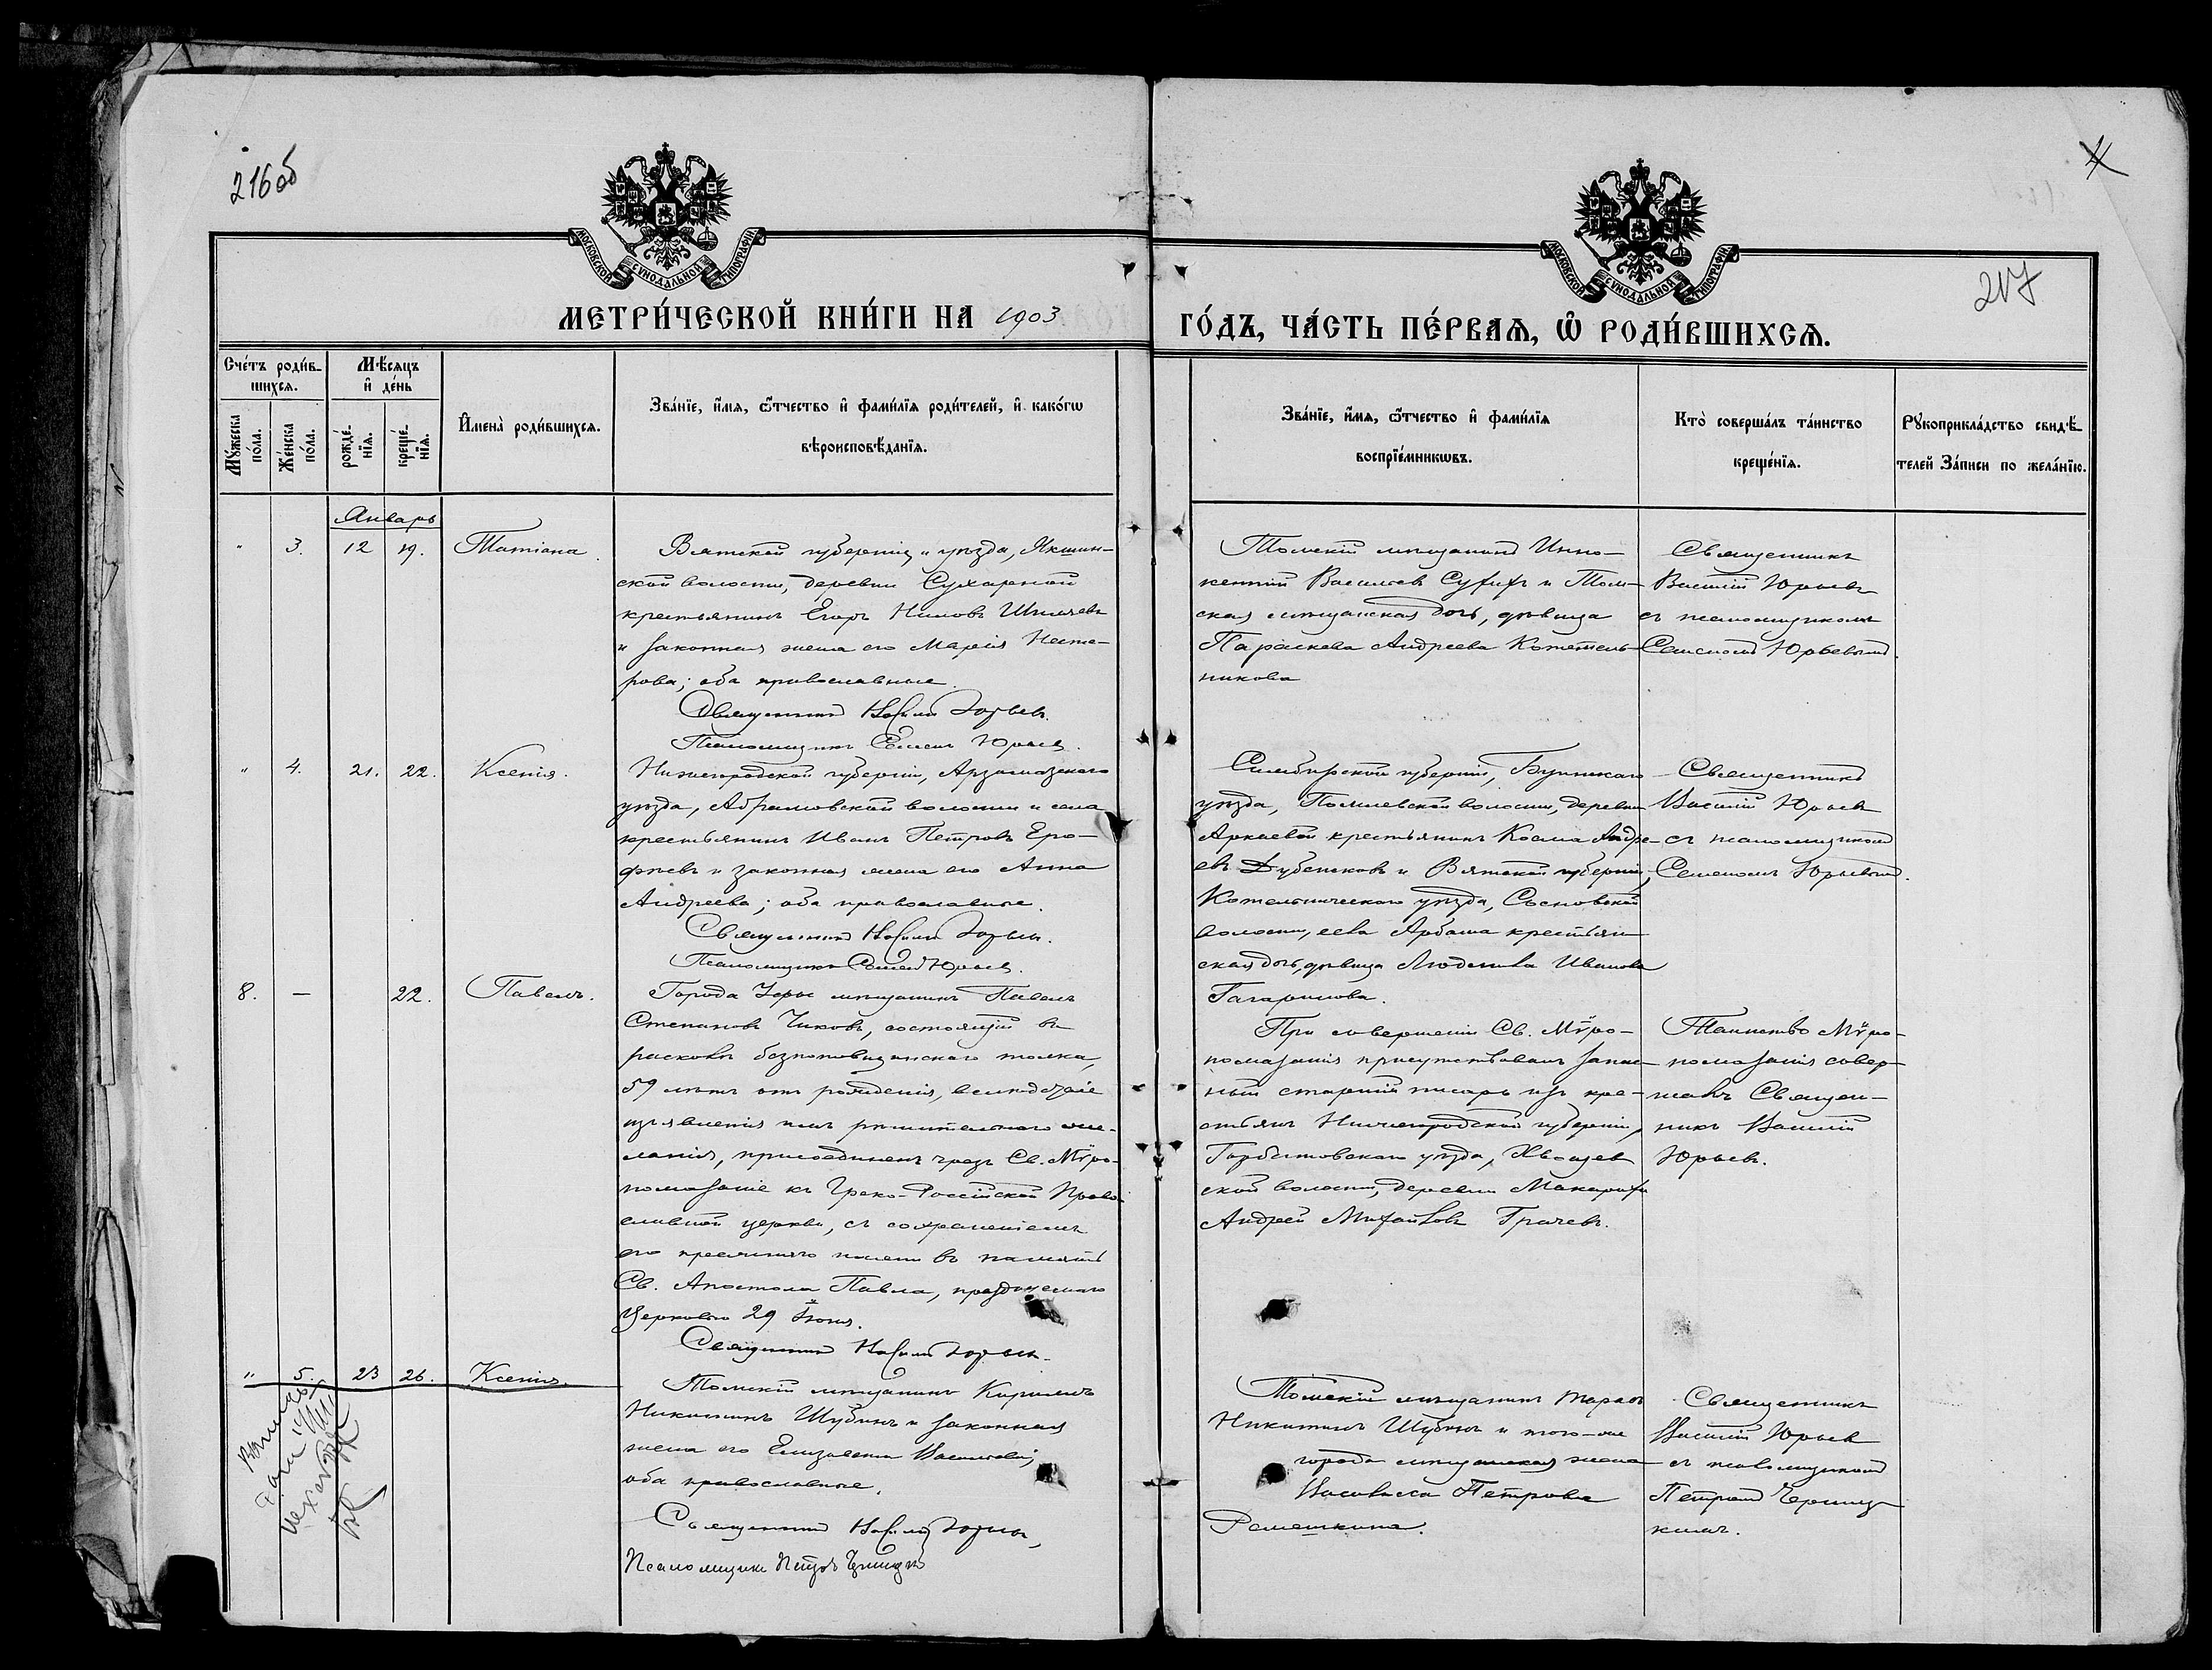 216об
4
217
МОСКОВСКОЙ СѴНОДАЛЬНОЙ ТИПОГРАФІИ
МОСКОВСКОЙ СѴНОДАЛЬНОЙ ТИПОГРАФІИ
МЕТРИ́ЧЕСКОЙ КНИ́ГИ НА 1903
ГО́ДЪ, ЧА́СТЬ ПЕ́РВАѦ, Ѡ РОДИ́ВШИХСѦ.
Сче́тъ роди́в-
шихсѧ.
Мꙋ́жеска
по́ла.
Же́нска
по́ла.
Мѣ́сѧцъ
и҆ де́нь
рожде́-
нїѧ.
креще́-
нїѧ.
И҆мена̀ роди́вшихсѧ.
Зва́нїе, и҆́мѧ, ѻ҆́тчество и҆ фами́лїѧ роди́телей, и҆ како́гѡ
вѣроисповѣ́данїѧ.
Зва́нїе, и҆́мѧ, ѻ҆́тчество и҆ фами́лїѧ
воспрїе́мникѡвъ.
Кто̀ соверша́лъ та́инство
креще́нїѧ.
Рꙋкоприкла́дство свидѣ́-
телей За́писи по жела́нїю.
Январь
" 3. 12 19. Татіана
Вятской губерніи и уѣзда, Якшин-
ской волости, деревни Сухаревой
крестьянинъ Егоръ Ниловъ
и законная жена его Марія Несте-
рова; оба православные.
Священникъ Василій Юрьевъ.
Псаломщикъ Семенъ Юрьевъ.
Томскій мѣщанинъ Инно-
кентій Васильевъ Сухихъ и Том-
ская мѣщанская дочь, дѣвица
Параскева Андреева Котель-
никова
Священникъ
Василій Юрьевъ
съ псаломщикомъ
Семеномъ Юрьевымъ.
" 4. 21. 22. Ксенія.
Нижегородской губерніи, Арзамазскаго
уѣзда, Абрамовской волости и села
крестьянинъ Иванъ Петровъ Еро-
фѣевъ и законная жена его Анна
Андреева; оба православные.
Священникъ Василій Юрьевъ.
Псаломщикъ Семенъ Юрьевъ.
Симбирской губерніи, Буинскаго
уѣзда, волости, деревни
крестьянинъ Косма Андре-
евъ Дубенсковъ и Вятской губерніи,
Котельническаго уѣзда, Сосновской
волости, села Арбажа крестьян-
ская дочь, дѣвица Людмила Иванова
Гагаринова.
Священникъ
Василій Юрьевъ
съ псаломщикомъ
Семеномъ Юрьевымъ.
8. — 22. Павелъ.
Города мѣщанинъ Павелъ
Степановъ Чиковъ, состоящій въ
расколѣ безпоповщинскаго толка,
59 лѣтъ отъ рожденія, вслѣдствіе
изъявленія имъ рѣшительнаго же-
ланія, присоединенъ чрезъ Св. Мѵро-
помазаніе къ Греко-Россійской Право-
славной церкви, съ сохраненіемъ
его прежняго имени въ память
Св. Апостола Павла, празднуемаго
Церковью 29 Іюня.
Священникъ Василій Юрьевъ.
При совершеніи Св. Мѵро-
помазанія присутствовалъ запас-
ный старшій писарь изъ кре-
стьянъ Нижегородской губерніи,
Горбатовскаго уѣзда, Хвощев-
ской волости, деревни Макарихи
Андрей Михайловъ Грачевъ.
Таинство Мѵро-
помазанія совер-
шалъ Священ-
никъ Василій
Юрьевъ.
" 5. 23 26. Ксенія.
Томскій мѣщанинъ Кириллъ
Никитинъ Шубинъ и законная
жена его Елизавета Васильева;
оба православные.
Священникъ Василій Юрьевъ,
Псаломщикъ Петръ
Томскій мѣщанинъ Марко
Никитинъ Шубинъ и того-же
города мѣщанская жена
Васильева Петрова
Ремешкина.
Священникъ
Василій Юрьевъ
съ псаломщикомъ
Петромъ